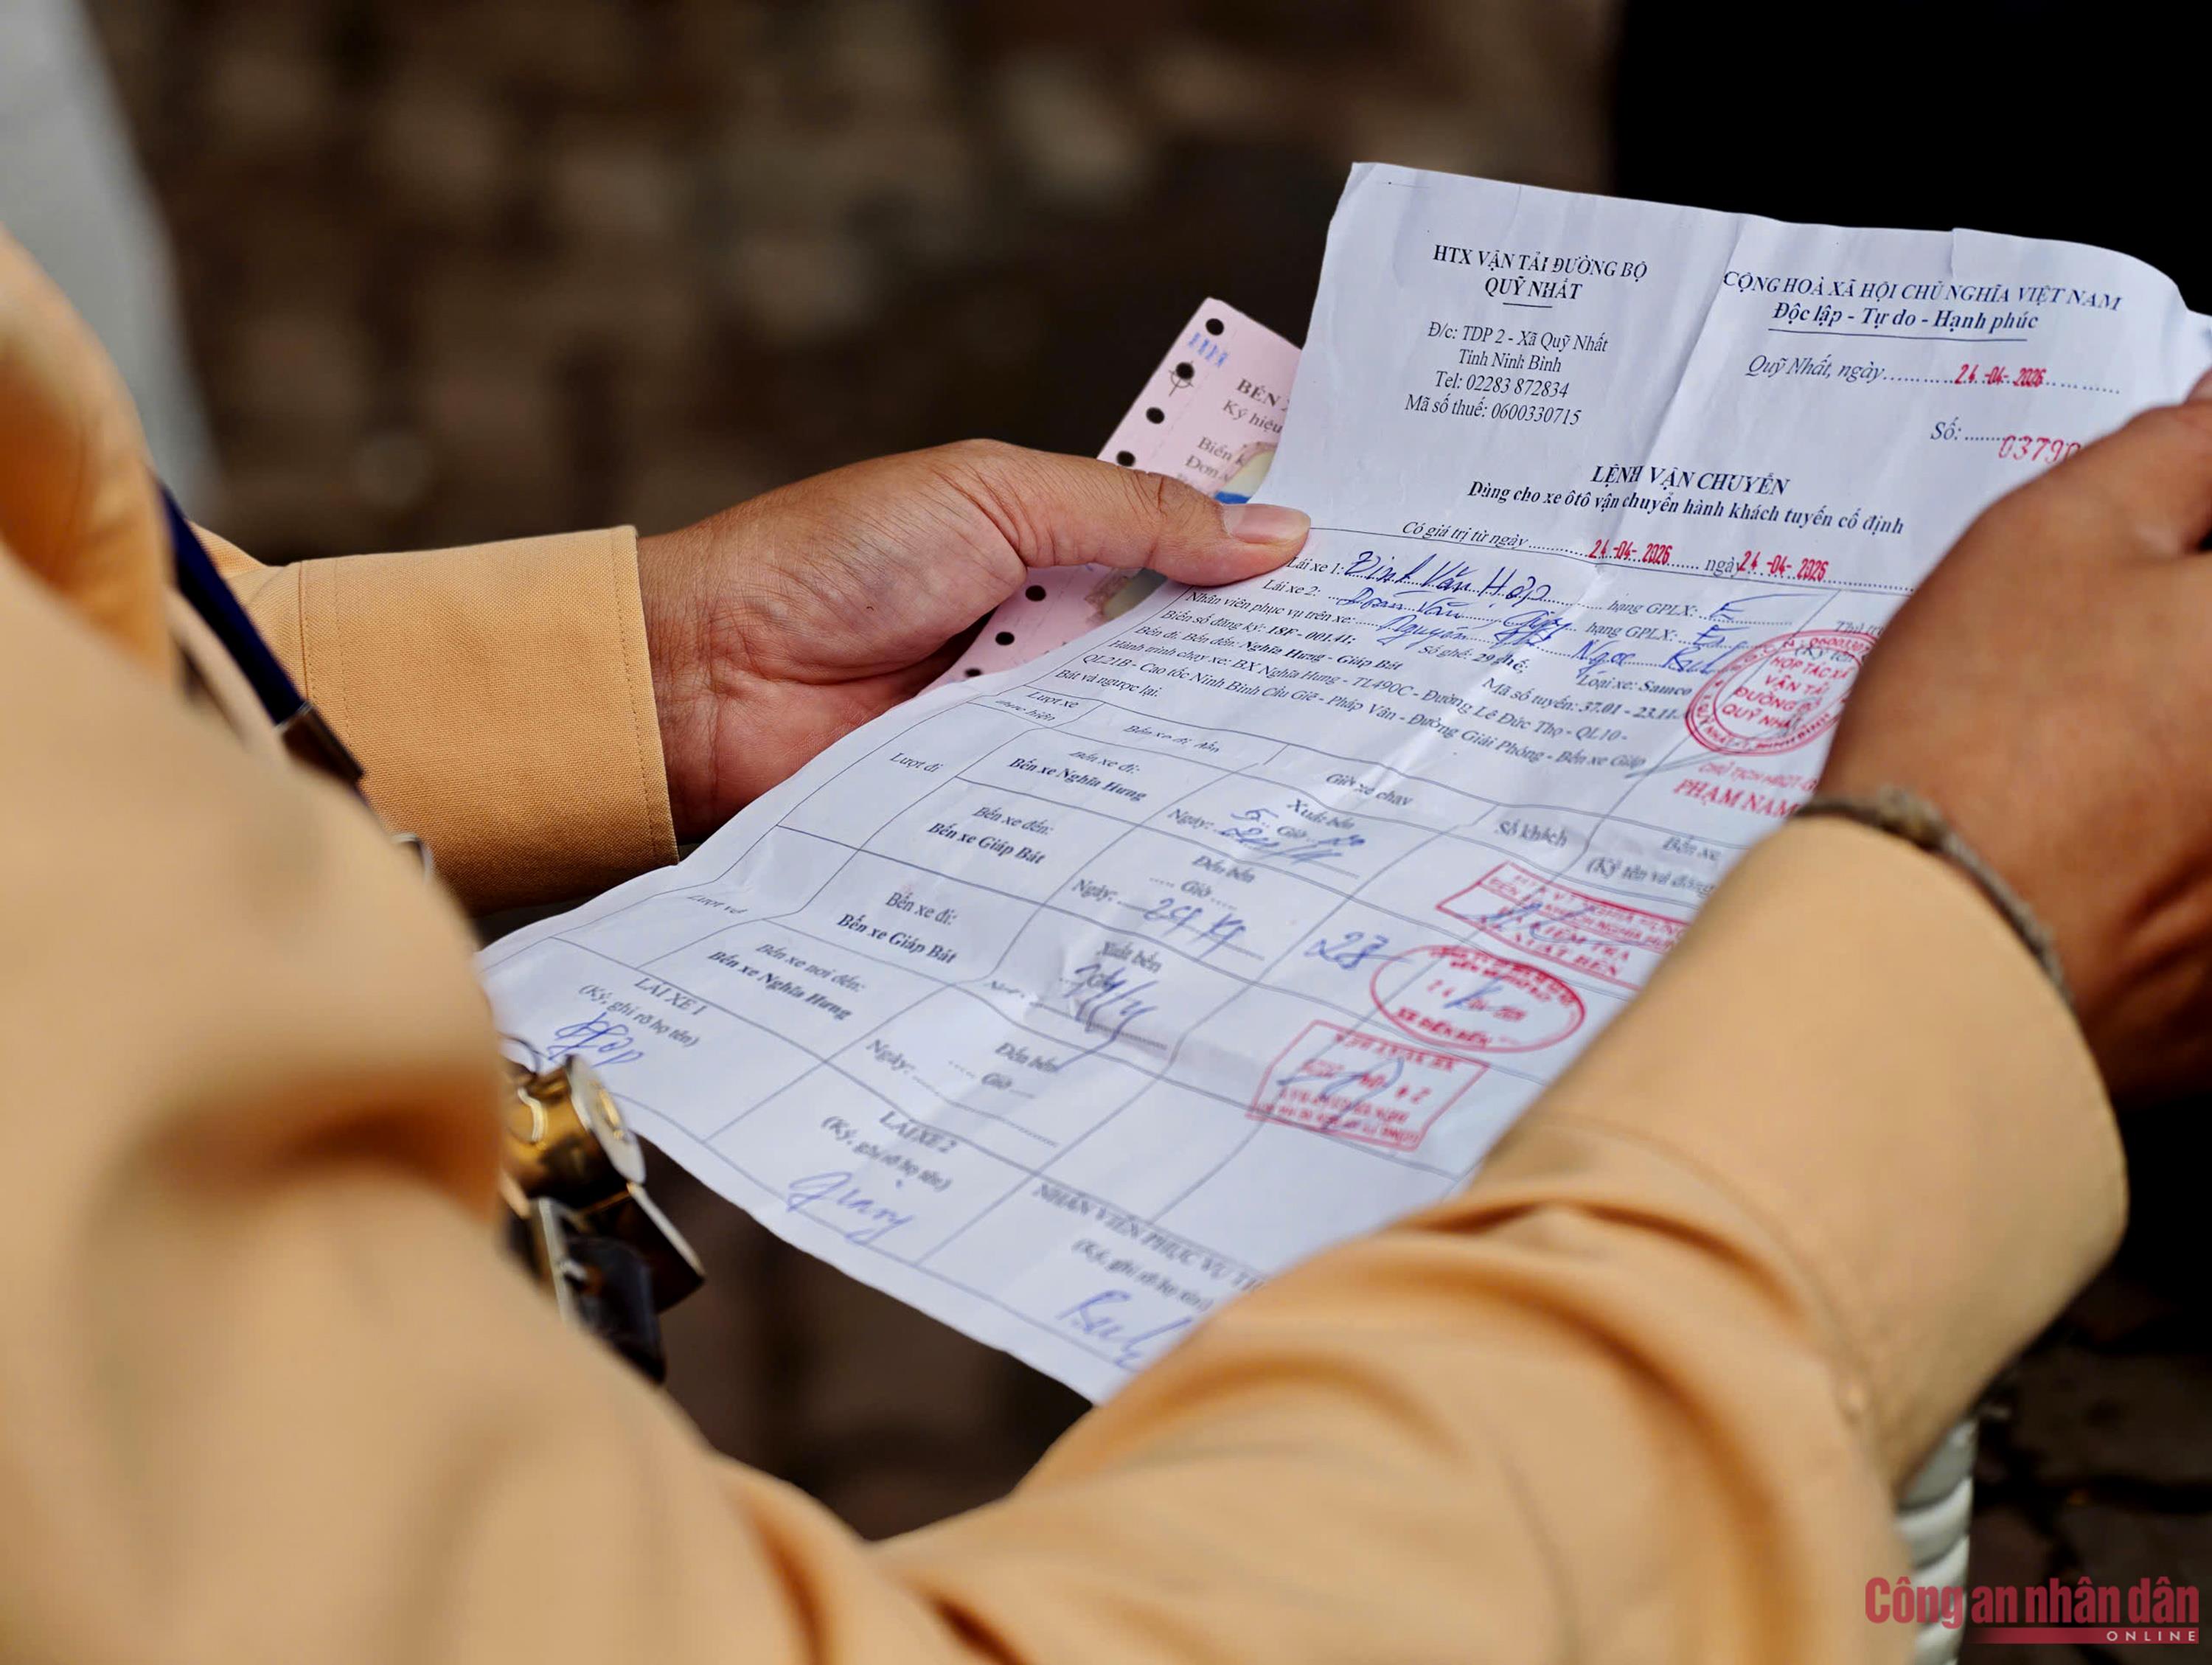 HTX VẬN TẢI ĐƯỜNG BỘ
QUỸ NHẤT
Đ/c: TDP 2 - Xã Quỹ Nhất
Tỉnh Ninh Bình
Tel: 02283 872834
Mã số thuế: 0600330715
CỘNG HOÀ XÃ HỘI CHỦ NGHĨA VIỆT NAM
Độc lập - Tự do - Hạnh phúc
Quỹ Nhất, ngày 24 -04- 2026
Số: 0379
LỆNH VẬN CHUYỂN
Dùng cho xe ôtô vận chuyển hành khách tuyến cố định
Có giá trị từ ngày 24 -04- 2026 ngày 24 -04- 2026
Lái xe 1: Đinh Văn Hợp hạng GPLX: E
Lái xe 2: Văn hạng GPLX: E
Nhân viên phục vụ trên xe: Nguyễn Ngọc
Biển số đăng ký: 18F - 001.41: Số ghế: 29 ghế, Loại xe: Samco
Bến đi, Bến đến: Nghĩa Hưng - Giáp Bát Mã số tuyến: 37.01 - 23.11
Hành trình chạy xe: BX Nghĩa Hưng - TL490C - Đường Lê Đức Thọ - QL10 -
QL21B - Cao tốc Ninh Bình Cầu Giẽ - Pháp Vân - Đường Giải Phóng - Bến xe Giáp
Bát và ngược lại.
HỢP TÁC XÃ
VẬN TẢI
ĐƯỜNG BỘ
QUỸ NHẤT
PHẠM NAM
Lượt xe
thực hiện
Bến xe đi, đến
Giờ xe chạy
Số khách
Bến xe
(Ký tên và đóng
Lượt đi
Bến xe đi:
Bến xe Nghĩa Hưng
Xuất bến
5 Giờ
Ngày:
Bến xe đến:
Bến xe Giáp Bát
Đến bến
Giờ
Ngày:
28
KIỂM TRA
XUẤT BẾN
Lượt về
Bến xe đi:
Bến xe Giáp Bát
Xuất bến
XE ĐẾN BẾN
Bến xe nơi đến:
Bến xe Nghĩa Hưng
Đến bến
Giờ
Ngày:
LÁI XE 1
(Ký, ghi rõ họ tên)
Hợp
LÁI XE 2
(Ký, ghi rõ họ tên)
NHÂN VIÊN PHỤC VỤ
(Ký, ghi rõ họ tên)
BẾN
Ký hiệu
Biển
Đơn
Công an nhân dân
ONLINE